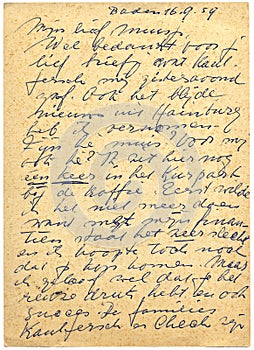 Baden 16.9.59
Mijn lief muusj,
Wel bedankt voor je
lief brief, want Kauf-
fersch mij zateravond
gaf. Ook het blijde
nieuws uit Hamburg
heb ik vernomen.
Fijn he muus? Voor mij
ook he? Ik zit hier nog
een keer in het Kurpark
bij de koffie. Eerst wilde
ik het niet meer doen
want met mijn finan-
tien staat het zeer slecht
en ik hoopte toch nog
dat je kon komen. Maar
ik geloof wel dat je het
reuze druk hebt en ook
succes. De families
Kauffersch en Chech zijn